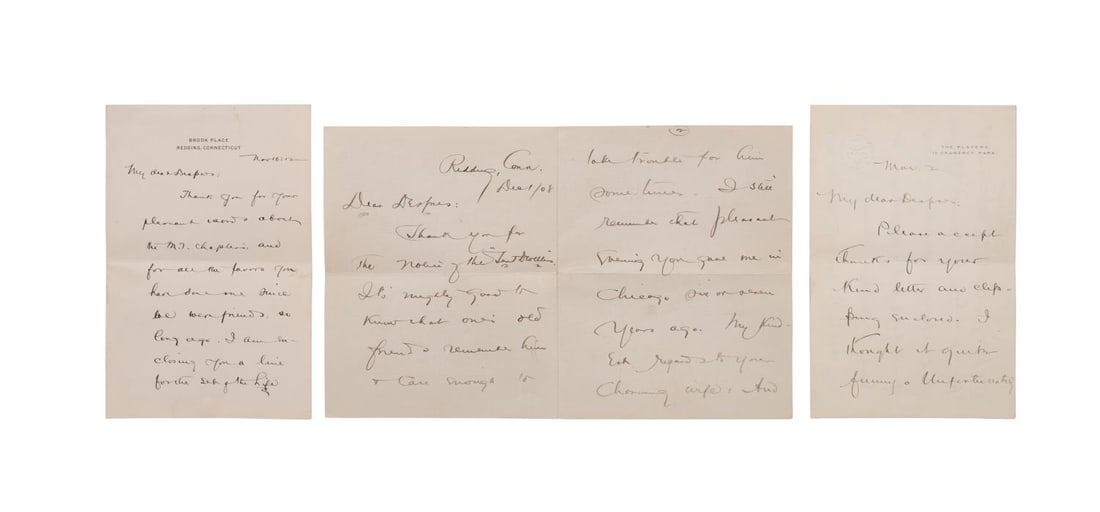 BROOK PLACE
REDDING, CONNECTICUT
Nov 18/12
My dear Despres:
Thank you for your
pleasant words about
the M.T. chapters. and
for all the favors you
have done me since
we were friends, so
long ago. I am en-
closing you a line
for the set of the Life
Redding, Conn.
Dec 1/08
Dear Despres:
Thank you for
the notice of the "Tent Dwellers.
It's mighty good to
know that one's old
friends remember him
& care enough to
2
take trouble for him
sometimes. I still
remember that pleasant
evening you gave me in
Chicago six or seven
years ago. My kind-
est regards to your
charming wife: And
THE PLAYERS
16 GRAMERCY PARK
Mar 2
My dear Despres.
Please accept
thanks for your
kind letter and clip-
ping enclosed. I
thought it quite
funny & unfortunately